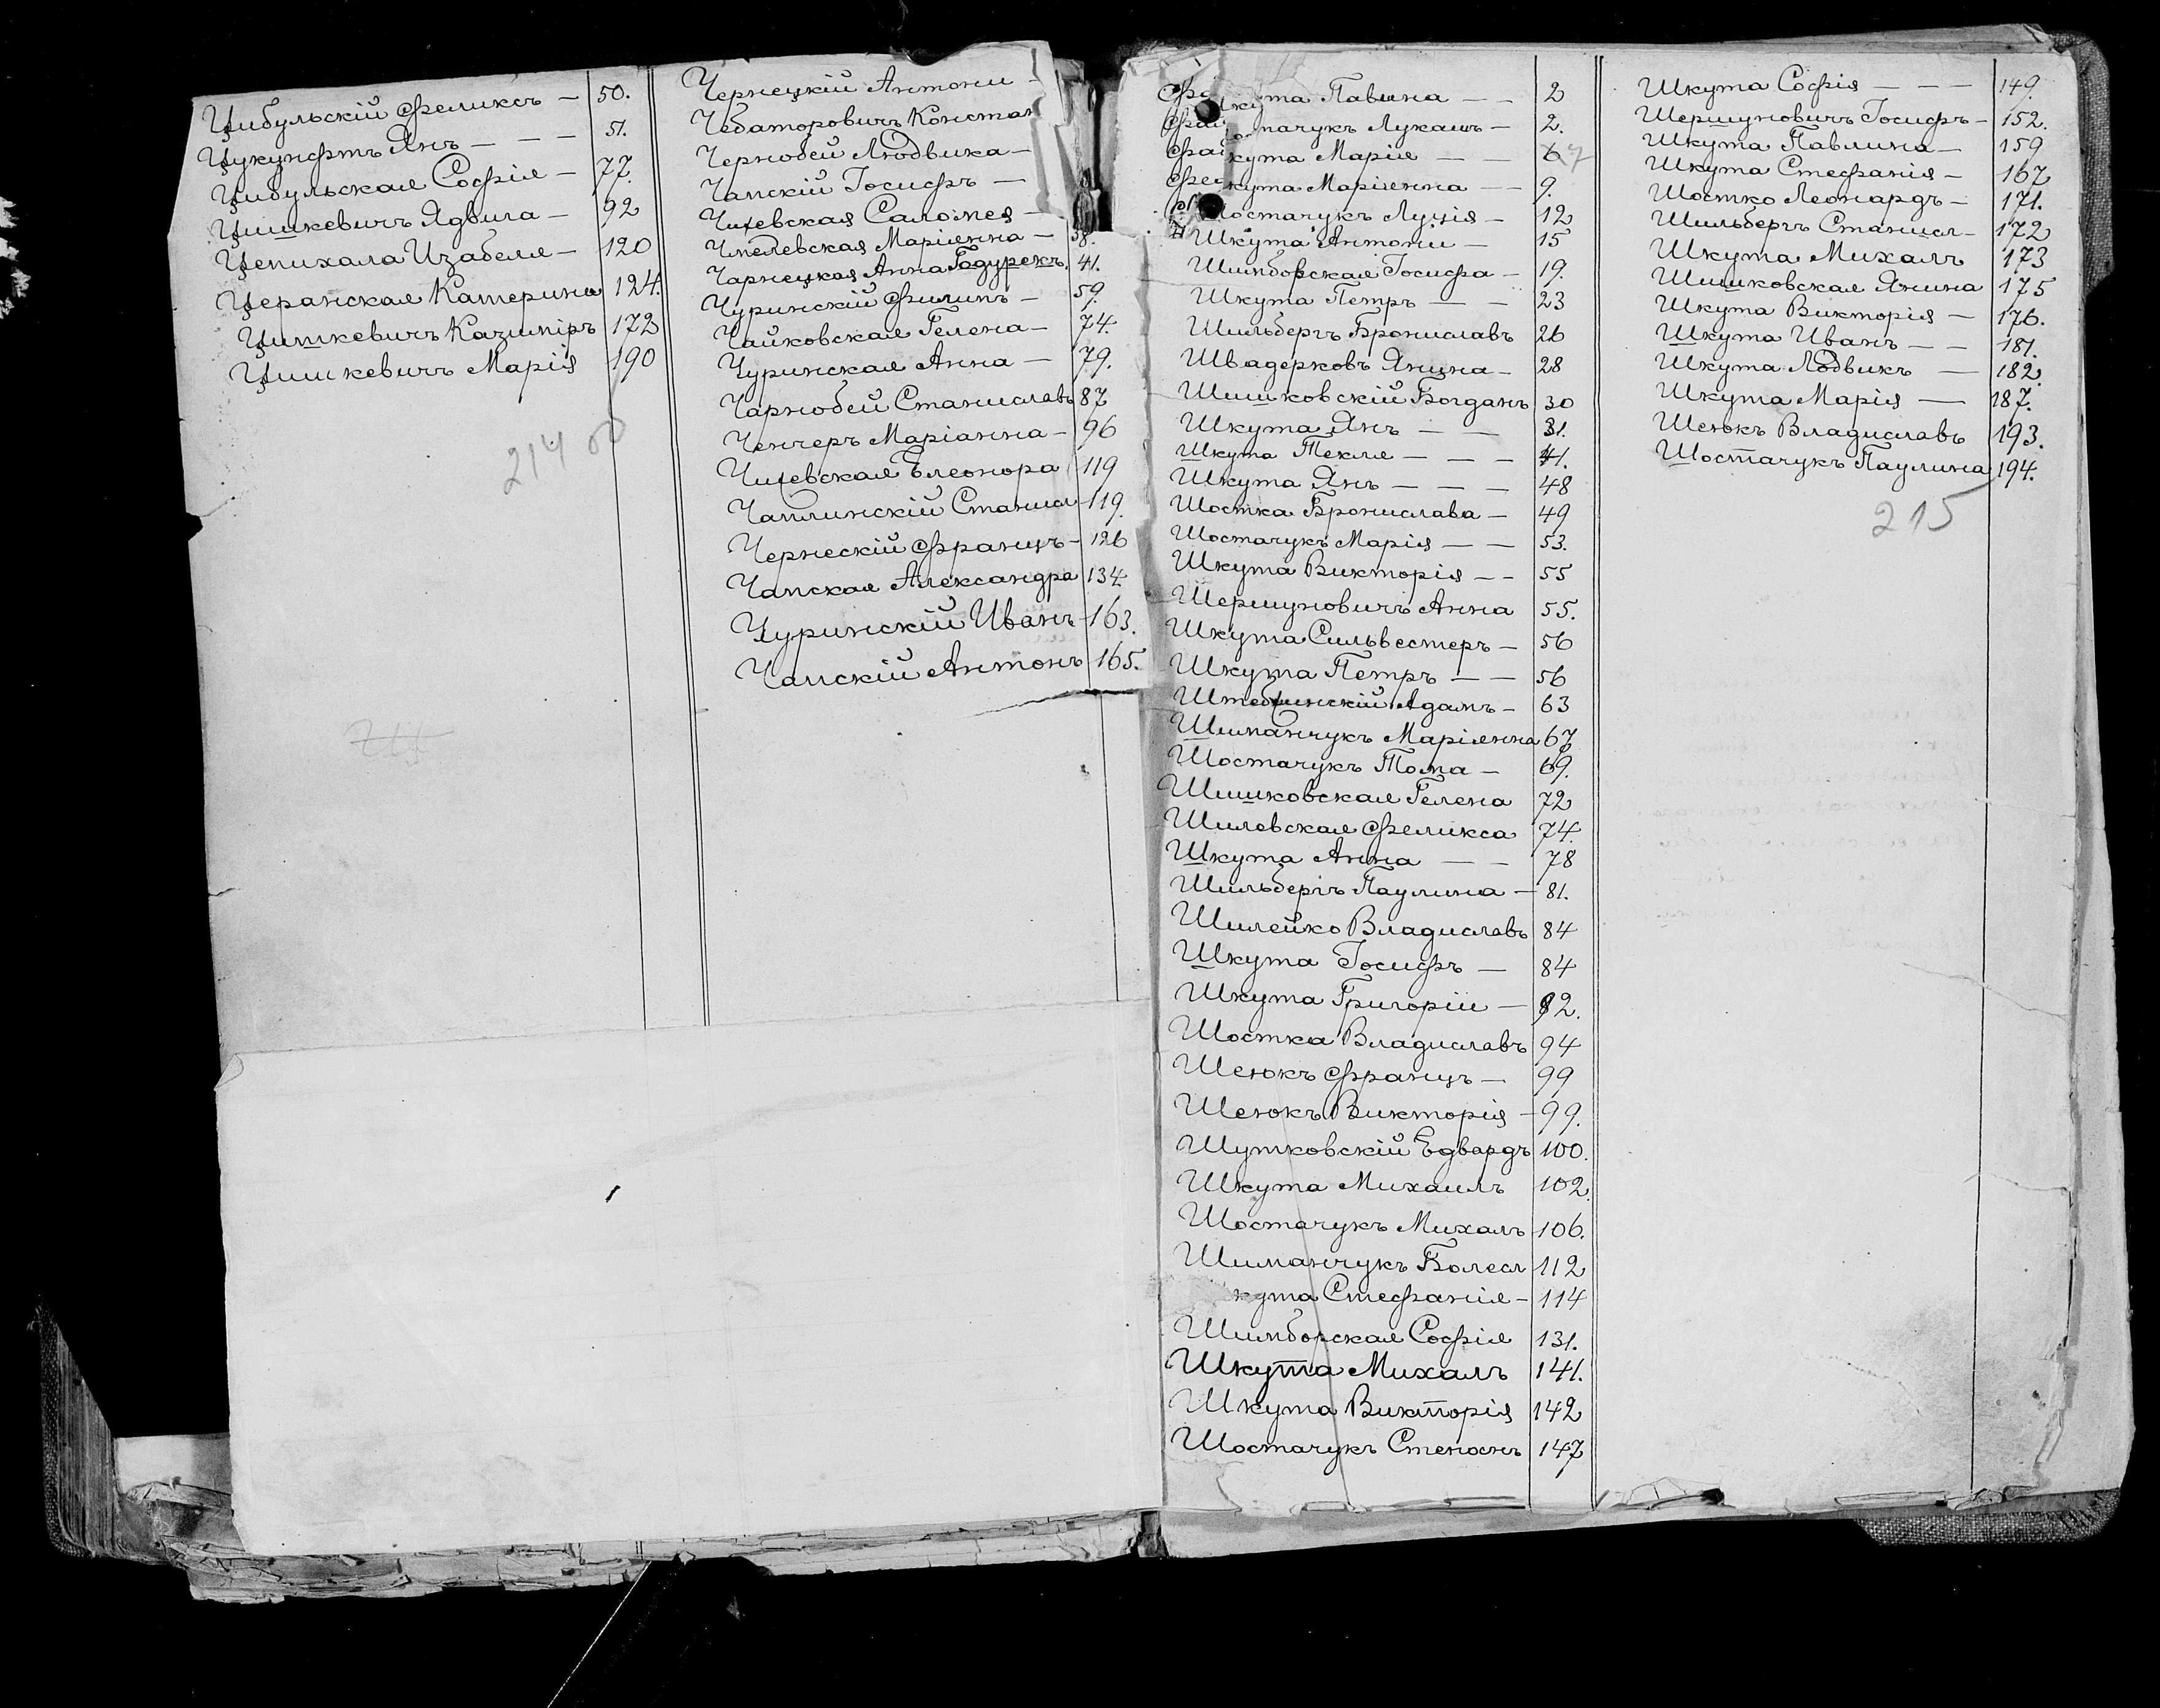 Цибульскій Феликсъ — 50.
Цукунфтъ Янъ — — — 51.
Цибульская Софія — 77.
Цишкевичъ Ядвига — 92
Цепихала Изабеля — 120
Церанская Катерина 124.
Цишкевичъ Казимiръ 172
Цишкевичъ Марія 190
214 об
Чернецкій Антони —
Чебаторовичъ Констан
Чернобей Людвика —
Чапскій Іосифъ —
Чижевская Саломея —
Чмелевская Маріянна — 38.
Чарнецкая Анна Гадурекъ. 41.
Чуринскій Филипъ — 59.
Чайковская Гелена — 74.
Чуринская Анна — 79.
Чарнобей Станиславъ 87
Ченчеръ Маріанна — 96
Чижевская Елеонора 119
Чаплинскій Станисл 119.
Чернескій Францъ — 126
Чапская Александра 134
Чуринскій Иванъ 163.
Чапскій Антонъ 165.
кута Павлина — — 2
стачукъ Лукашъ — 2.
кута Марія — — 67
кута Маріянна — — 9.
Шостачукъ Луція — 12
Шкута Антони — 15
Шимборская Іосифа — 19.
Шкута Петръ — — 23
Шильбергъ Брониславъ 26
Швадерковъ Янина — 28
Шишковскій Богданъ 30
Шкута Янъ — — 31.
Шкута Текля — — — 41.
Шкута Янъ — — — 48
Шостка Бронислава — 49
Шостачукъ Марія — — 53.
Шкута Викторія — — 55
Шершуновичъ Анна 55.
Шкута Сильвестеръ — 56
Шкута Петръ — — 56
Адамъ — 63
Шиманчукъ Маріянна 67
Шостачукъ Тома — 69.
Шишковская Гелена 72
Шилевская Феликса 74.
Шкута Анна — — 78
Шильбергъ Паулина — 81.
Шилейко Владиславъ 84
Шкута Іосифъ — 84
Шкута Григорій — 92.
Шостка Владиславъ 94
Шеюкъ Францъ — 99
Шеюкъ Викторія — 99.
Шутковскій Едвардъ 100.
Шкута Михаилъ 102.
Шостачукъ Михалъ 106.
Шиманчукъ Болесл 112
кута Стефанія — 114
Шимборская Софія 131.
Шкута Михалъ 141.
Шкута Викторія 142
Шостачукъ Степанъ 147
Шкута Софія — — — 149.
Шершуновичъ Іосифъ — 152.
Шкута Павлина — 159
Шкута Стефанія — 167
Шостко Леонардъ — 171.
Шильбергъ Станисл — 172
Шкута Михалъ 173
Шишковская Янина 175
Шкута Викторія — 176.
Шкута Иванъ — — 181.
Шкута Людвикъ — 182.
Шкута Марія — 187.
Шеюкъ Владиславъ 193.
Шостачукъ Паулина 194.
215